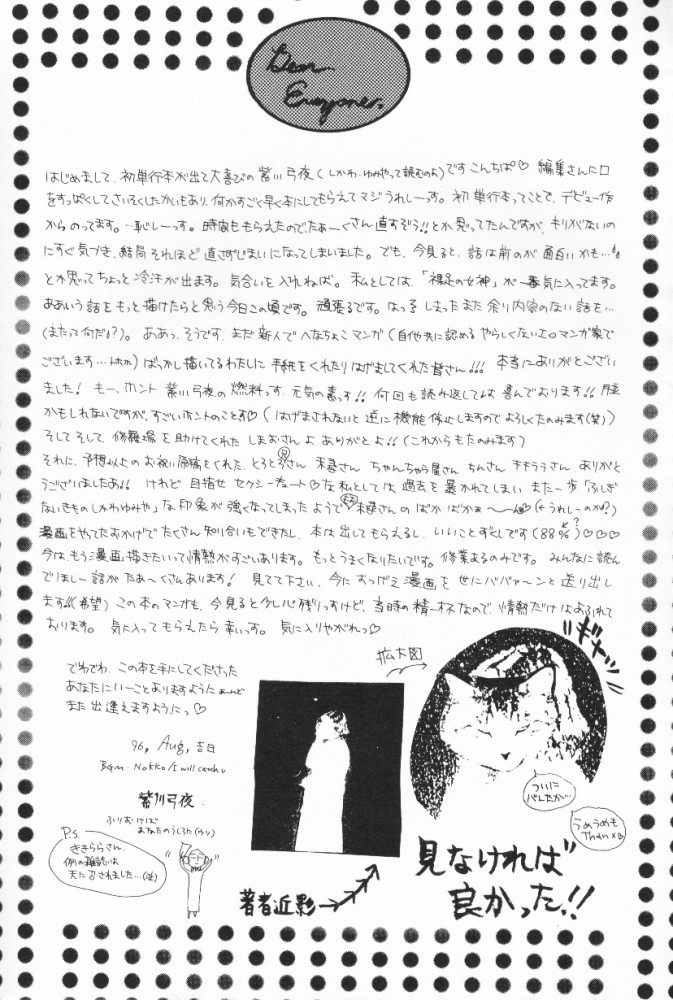 Dear
Everyone.
はじめまして、初単行本が出て大喜びの紫川弓夜(しかわ・ゆみやって読むのよ)です こんちぱ♡ 編集さんに口
をすっぱくしてさいそくしたかいもあり、何かすごく早く本にしてもらえてマジうれしーっす。初単行本ってことで、デビュー作
からのってます。恥しーっす。時間ももらえたのでたぁ〜くさん直すぞう!!とか思ってたんですが、キリがないの
にすぐ気づき、結局それほど直さずじまいになってしまいました。でも、今見ると、話は前のが面白いかも…
とか思ってちょっと冷汗が出ます。気合いを入れねば。私としては、「裸足の女神」が一番気に入ってます。
ああいう話をもっと描けたらと思う今日この頃です。頑張るです。はっ しまったまた余り内容のない話を…
(またって何だ?)。ああっ、そうです、まだ新人でへなちょこマンガ(自他共に認めるやらしくないエロマンガ家で
ございます…トホホ)ばっかし描いてるわたしに手紙をくれたりはげましてくれた皆さん!!! 本当にありがとござい
ました! もー、ホント紫川弓夜の燃料っす、元気の素っす!! 何回も読み返しては喜んでおります!!
かもしれないですが、すごいホントのことす♡(はげまされないと逆に機能停止しますのでよろしくたのみます(笑))
そしてそして、修羅場を助けてくれた しまおさんよ ありがとよ!!(これからもたのみます)
それに、予想以上のお祝い原稿をくれた、とろとろさん ちゃんちゃら屋さん ちんさん キキララさん、ありがと
うございましたあ!! けれど 目指せ セクシーキュート♡な私としては過去を暴かれてしまい また一歩「ふしぎ
ないきものしかわゆみや」な印象が強くなってしまったようで さんのばかばかぁ〜ん♡(←うれしーのか?)
漫画をやってたおかげでたくさん知り合いもできたし、本は出してもらえるし、いいことずくしです(88%?)♡♡♡
今はもう漫画描きたいって情熱がすごいあります。もっとうまくなりたいです。修業あるのみです。みんなに読ん
でほしー話がたぁ〜くさんあります! 見てて下さい、今にすっげえ漫画を世にババァ〜ンと送り出し
ます!!(希望) この本のマンガも、今見ると少し心残りっすけど、当時の精一杯なので、情熱だけはあふれて
おります。 気に入ってもらえたら幸いっす。 気に入りやがれっ♡
でわでわ、この本を手にしてくださった
あなたにいーことありますように
また出逢えますようにっ♡
96, Aug, 吉日
BGM: Nokko/I will catch u
紫川弓夜
ふりむけば
あなたのうしろに(ウソ)
P.S.
ききららさん、
例の雑誌は
天に召されました…(泣)
拡大図
ギャー
ついに
バレたか…
うめうめも
Than×2
著者近影
見なければ
良かった!!